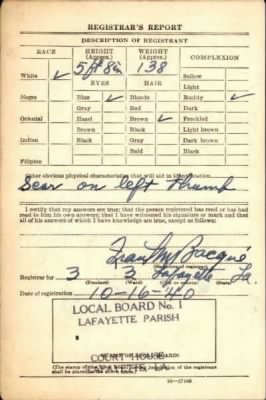 REGISTRAR'S REPORT
DESCRIPTION OF REGISTRANT
RACE HEIGHT (Approx.) WEIGHT (Approx.) COMPLEXION
5 ft 8 in 138
White ✓ Sallow
EYES HAIR Light
Negro Blue ✓ Blonde Ruddy ✓
Gray Red Dark
Oriental Hazel Brown ✓ Freckled
Brown Black Light brown
Indian Black Gray Dark brown
Bald Black
Filipino
Other obvious physical characteristics that will aid in identification
Scar on left thumb
I certify that my answers are true; that the person registered has read or has had
read to him his own answers; that I have witnessed his signature or mark and that
all of his answers of which I have knowledge are true, except as follows:
Bacqué
Registrar for 3 2 Lafayette La.
(Precinct) (Ward)
Date of registration 10-16-40
LOCAL BOARD No. 1
LAFAYETTE PARISH
COURT HOUSE
LAFAYETTE, LA.